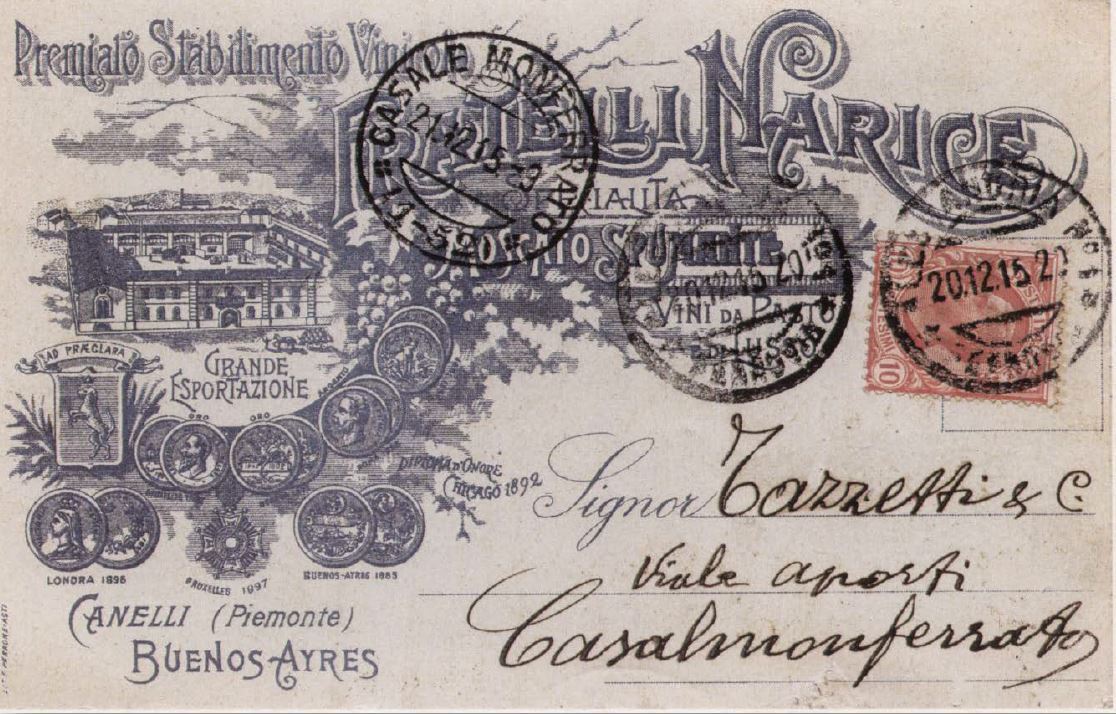 Premiato Stabilimento
F.LLI NARICE
SPECIALITÀ
MOSCATO SPUMANTE
VINI DA PASTO
CASALE MONFERRATO
21.12.15-9
20.12.15
20.12.15
10
AD PRÆCLARA
GRANDE
ESPORTAZIONE
ORO ORO ARGENTO
DIPLOMA D'ONORE
CHICAGO 1892
LONDRA 1896
BRUXELLES 1897
BUENOS-AYRES 1885
CANELLI (Piemonte)
BUENOS-AYRES
Signor Tazzetti & C.
Viale aporti
Casalmonferrato